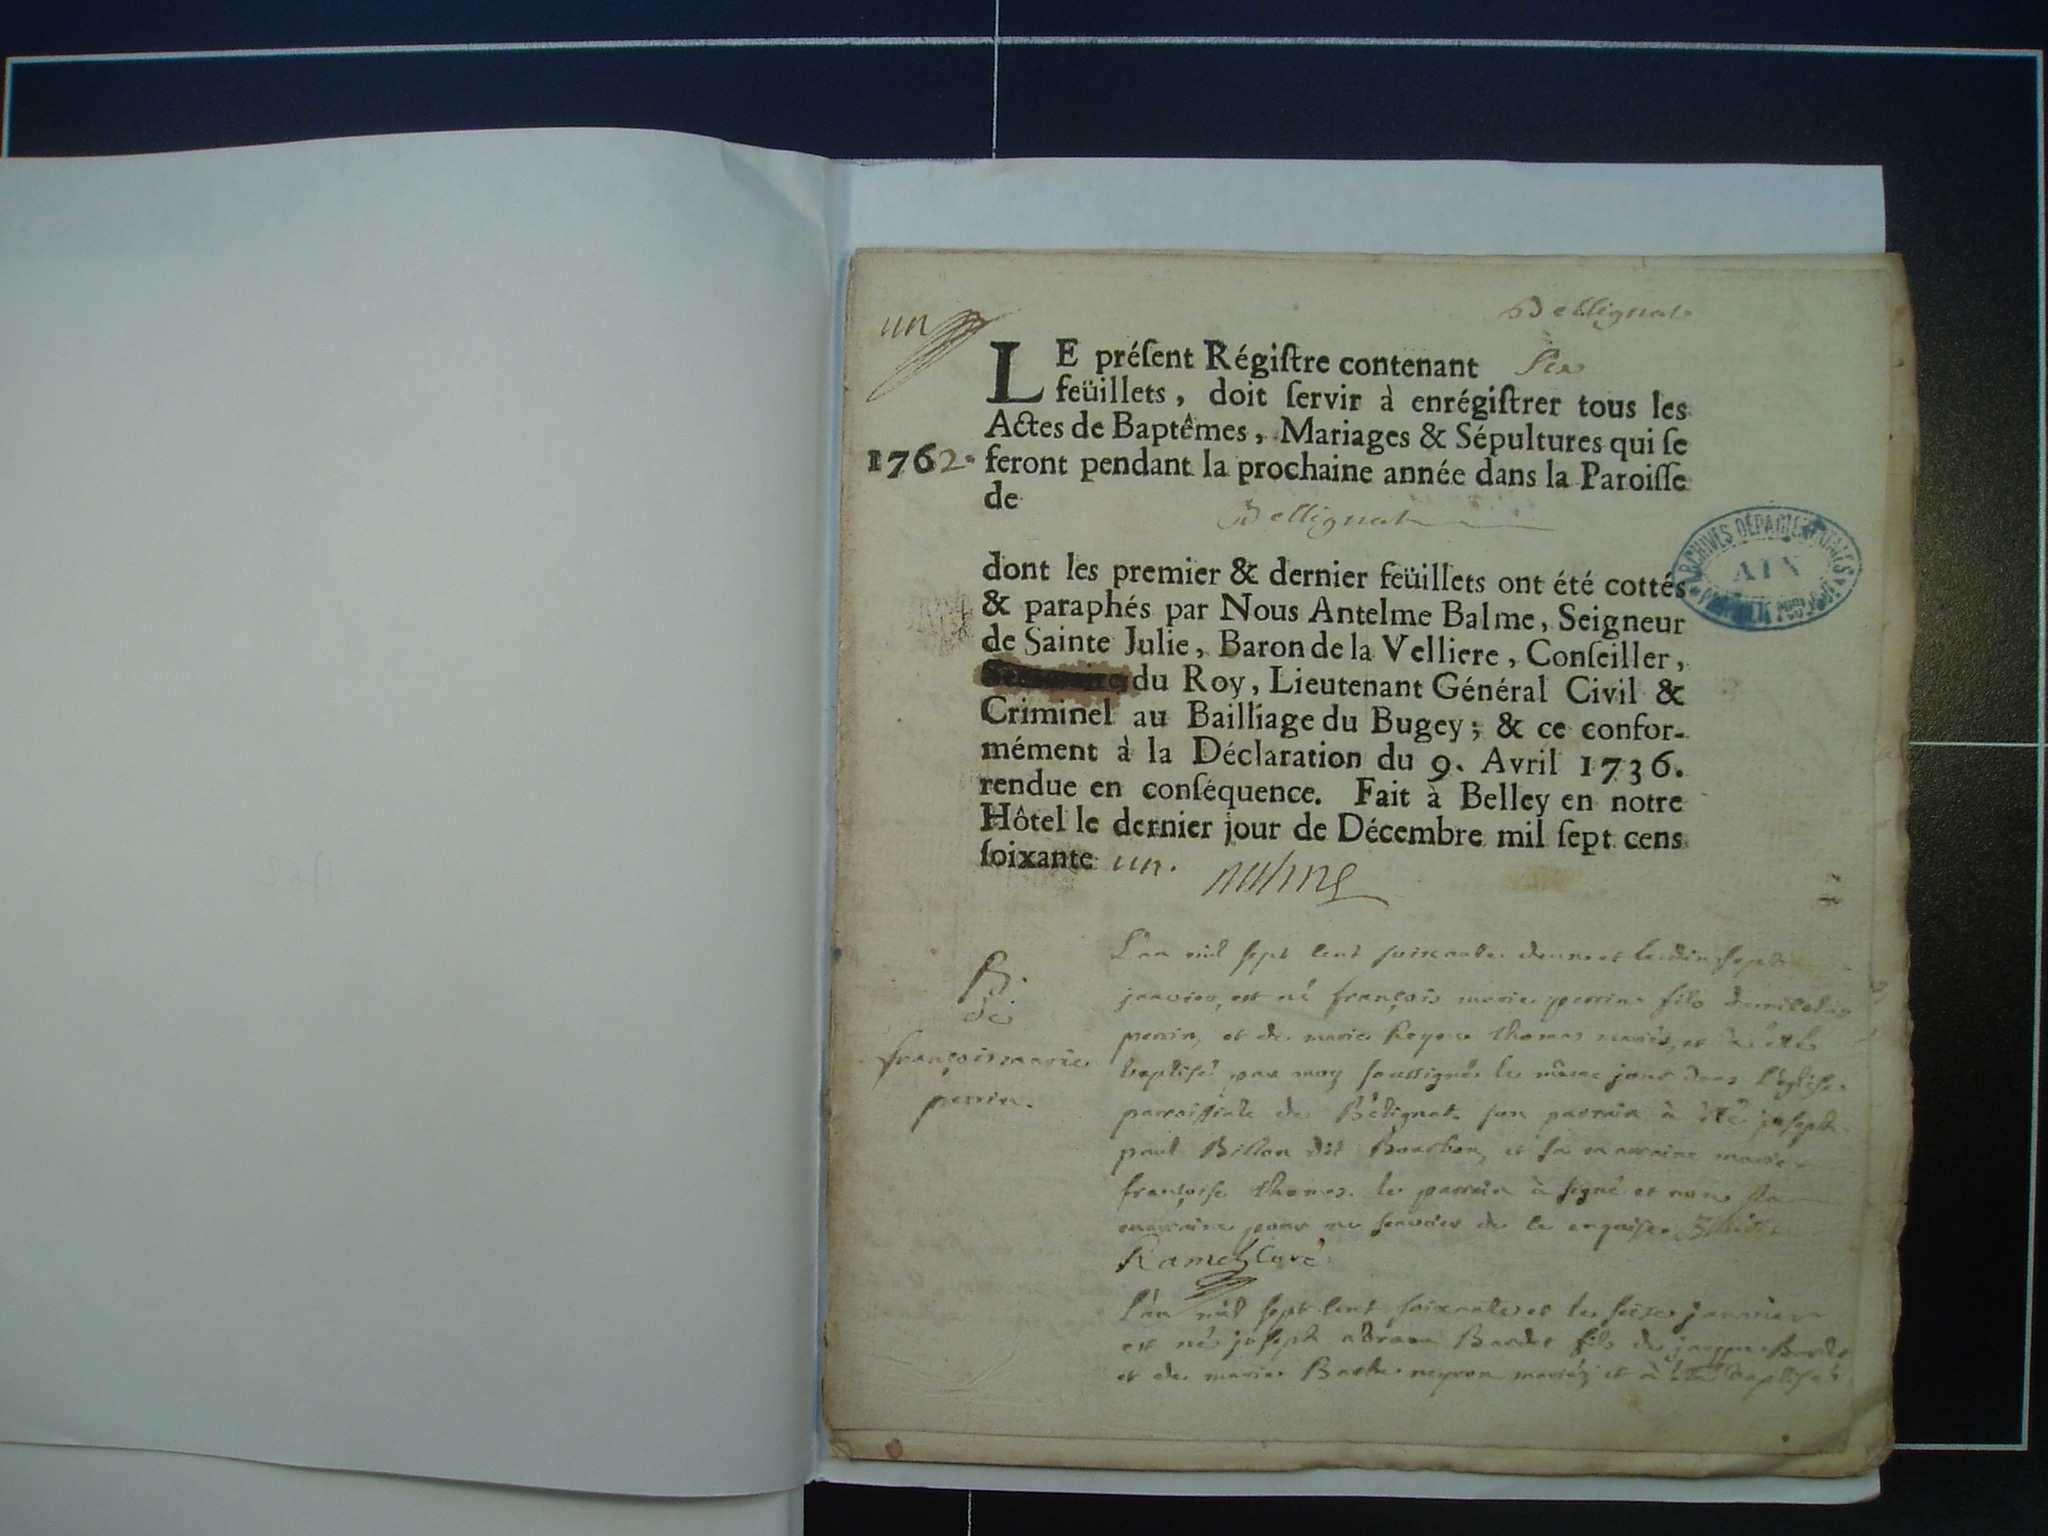 Bellignat
un
LE préſent Régiſtre contenant Six
feüillets, doit ſervir à enrégiſtrer tous les
Actes de Baptêmes, Mariages & Sépultures qui ſe
1762. feront pendant la prochaine année dans la Paroiſſe
de
Bellignat
dont les premier & dernier feüillets ont été cottés
& paraphés par Nous Antelme Balme, Seigneur
de Sainte Julie, Baron de la Velliere, Conſeiller,
du Roy, Lieutenant Général Civil &
Criminel au Bailliage du Bugey; & ce confor-
mément à la Déclaration du 9. Avril 1736.
rendue en conſéquence. Fait à Belley en notre
Hôtel le dernier jour de Décembre mil ſept cens
ſoixante un. Balme
ARCHIVES DÉPARTEMENTALES
AIN
B.
de
françois marie
perrin.
L'an mil sept cent soixante deux et le dix sept
janvier, est né françois marie perrin fils
perrin, et de marie thomas mariés, et à été
baptisé par moy soussigné le même jour dans l'église
parroissiale de Bélignat son parrain à été joseph
paul Billon dit Bourbon, et sa marraine marie
françoise thomas. le parrain à signé et non la
marraine pour ne sçavoir de ce enquise
Ramel Curé
L'an mil sept cent soixante et le seize janvier
est né joseph Bardet fils de jacque Bardet
et de marie neyron mariéz et à été baptisé